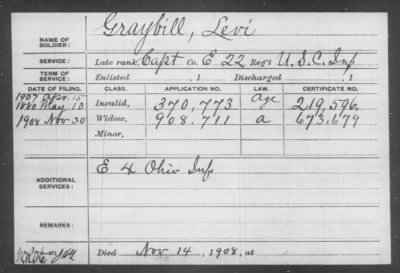 NAME OF SOLDIER: Graybill, Levi
SERVICE: Late rank, Capt Co. E 22 Reg't U.S.C. Inf
TERM OF SERVICE: Enlisted , 1 Discharged , 1
DATE OF FILING. CLASS. APPLICATION NO. LAW. CERTIFICATE NO.
1907 Apr. 15
1880 May 10 Invalid, 370,773 Age 219,596
1908, Nov 30 Widow, 908,711 a 673,679
Minor,
ADDITIONAL SERVICES: E 4 Ohio Inf
REMARKS:
Died Nov 14, 1908, at